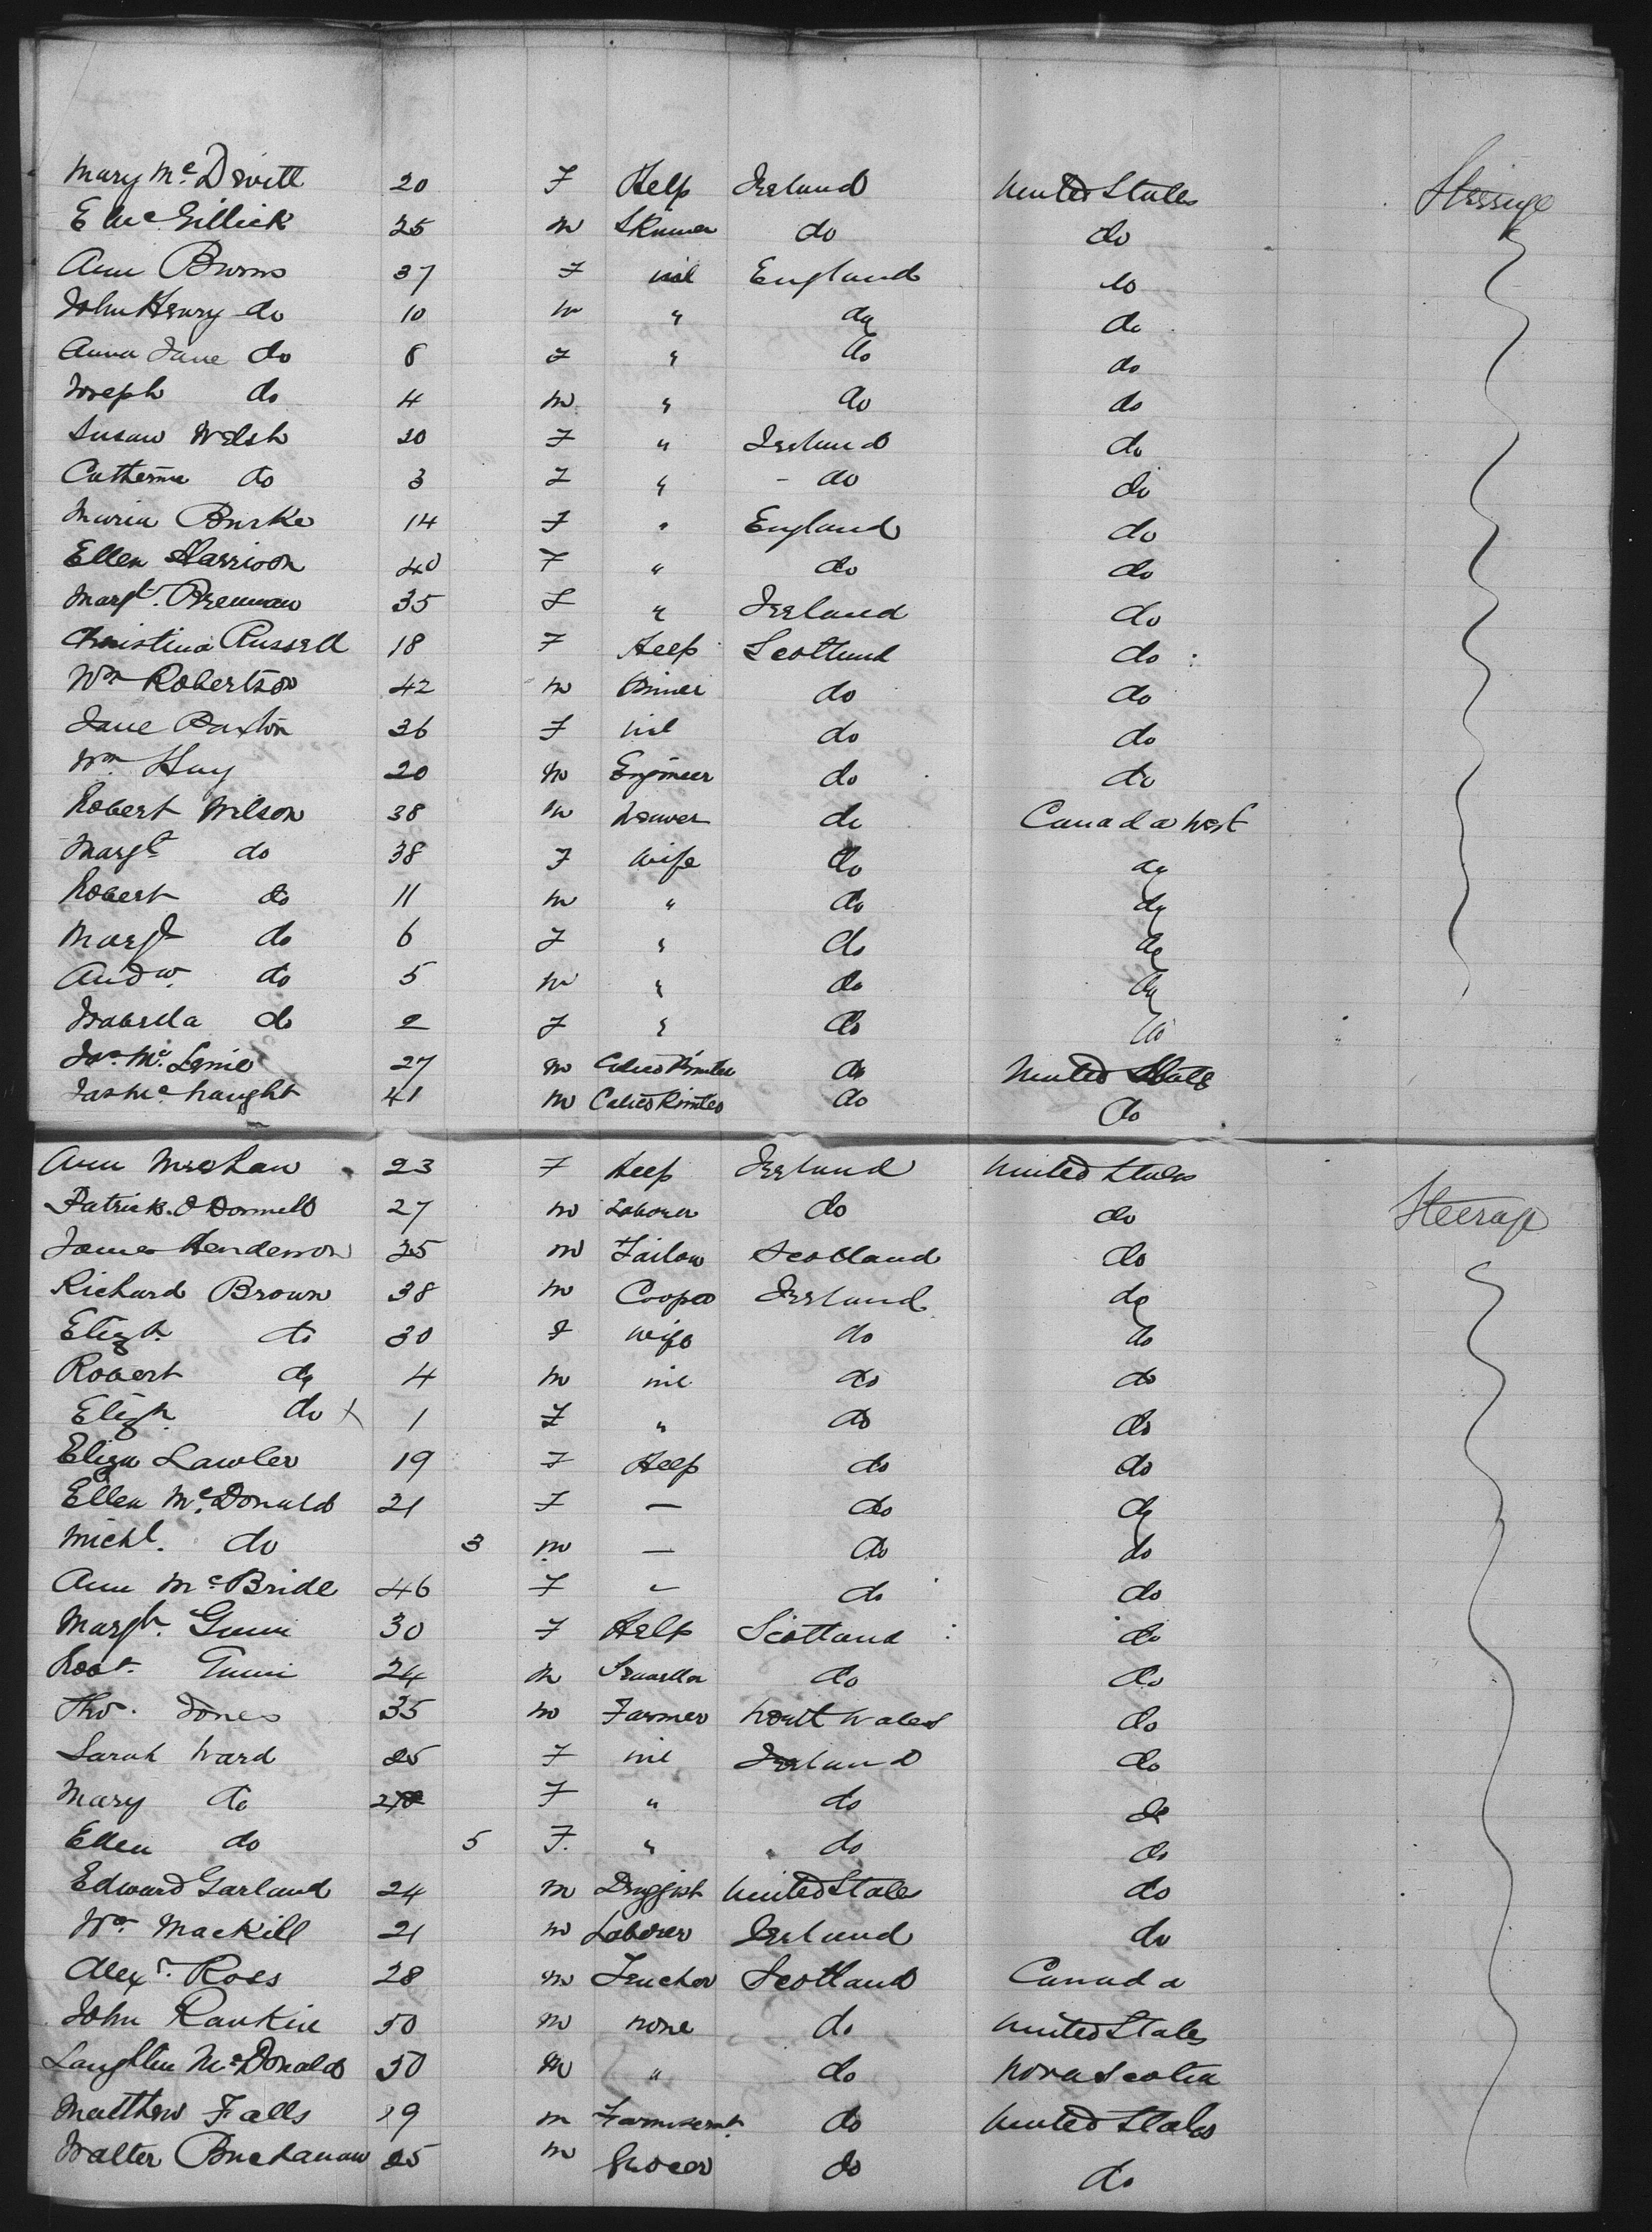 Mary McDevitt 20 F Help Ireland United States Steerage
E McGillick 25 m Skinner do do
Ann Burns 37 F nil England do
John Henry do 10 m " do do
Anna Jane do 8 F " do do
Joseph do 4 m " do do
Susan Welsh 20 F " Ireland do
Catherine do 3 F " do do
Maria Burke 14 F " England do
Ellen Harrison 40 F " do do
Margt. Brennan 35 F " Ireland do
Christina Russell 18 F Help Scotland do
Wm Robertson 42 m Miner do do
Jane Paxton 36 F nil do do
Wm Hay 20 m Engineer do do
Robert Wilson 38 m Weaver do Canada West
Margt do 38 F Wife do do
Robert do 11 m " do do
Margt do 6 F " do do
Andw. do 5 m " do do
Isabella do 2 F " do do
Jas. Mc 27 m Calico Printer do United States
Jas Mc Naught 41 m Calico Printer do do
Ann Meehan 23 F Help Ireland United States
Patrick O Donnell 27 m Laborer do do Steerage
James Henderson 35 m Tailor Scotland do
Richard Brown 38 m Cooper Ireland do
Elizh. do 30 F Wife do do
Robert do 4 m nil do do
Elizh. do x 1 F " do do
Eliza Lawler 19 F Help do do
Ellen McDonald 21 F — do do
Michl. do 3 m — do do
Ann McBride 46 F " do do
Margt. Gunn 30 F Help Scotland do
Robt. Gunn 24 m do do
Tho. Jones 35 m Farmer North Wales do
Sarah Ward 25 F nil Ireland do
Mary do F " do do
Ellen do 5 F. " do do
Edward Garland 24 m Druggist United States do
Wm Mackill 21 m Laborer Ireland do
Alexr. Ross 28 m Teacher Scotland Canada
John Rankin 50 m none do United States
Laughlin McDonald 50 m " do Nova Scotia
Matthew Falls 19 m Farmservt. do United States
Walter Buchanan 25 m Grocer do do